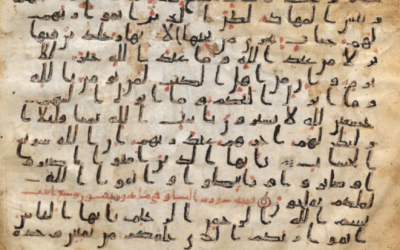 وبئس المهاد لكن الذين اتقوا ربهم
لهم جنات تجري من تحتها الانهار خلدين فيها
نزلا من عند الله وما عند الله خير للا
برار وان من اهل الكتب لمن يومن بالله
وما انزل اليكم وما انزل اليهم
خشعين لله لا يشترون بايت الله ثمنا قليلا
اولئك لهم اجرهم عند ربهم ان الله سريع
الحساب يايها الذين امنوا اصبروا
وصابروا ورابطوا واتقوا الله
لعلكم تفلحون سورة النسا
بسم الله الرحمن الرحيم يايها الناس
اتقوا ربكم الذي خلقكم من نفس وحدة